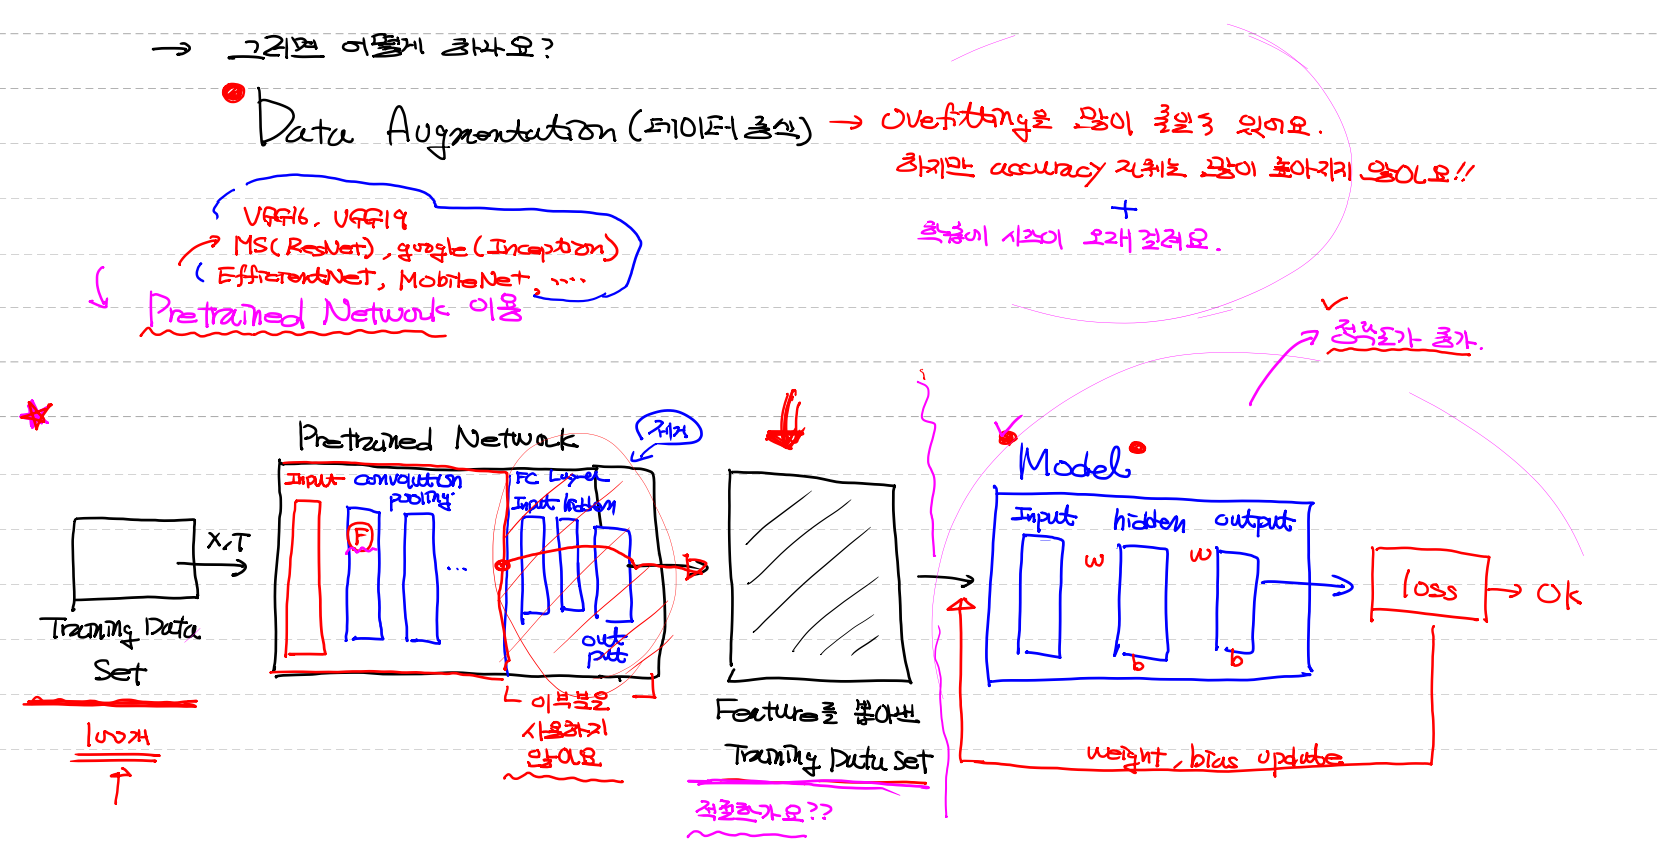 → 그러면 어떻게 하나요?
Data Augmentation (데이터 증식) → Ovefitting을 많이 줄일 수 있어요.
하지만 accuracy 자체는 많이 높아지지 않아요!!
+
학습에 시간이 오래 걸려요.
VGG16, VGG19
MS(ResNet), google (Inception)
EfficientNet, MobileNet, ....
Pretrained Network 이용
정확도가 증가.
Pretrained Network
제거
Model
Input Convolution pooling
FC Layer
Input hidden
F
...
output
X, T
Training Data Set
100개
이부분을
사용하지
않아요
Feature를 뽑아낸
Training Data Set
적절한가요??
Input hidden output
w w
b b
loss → Ok
weight, bias update